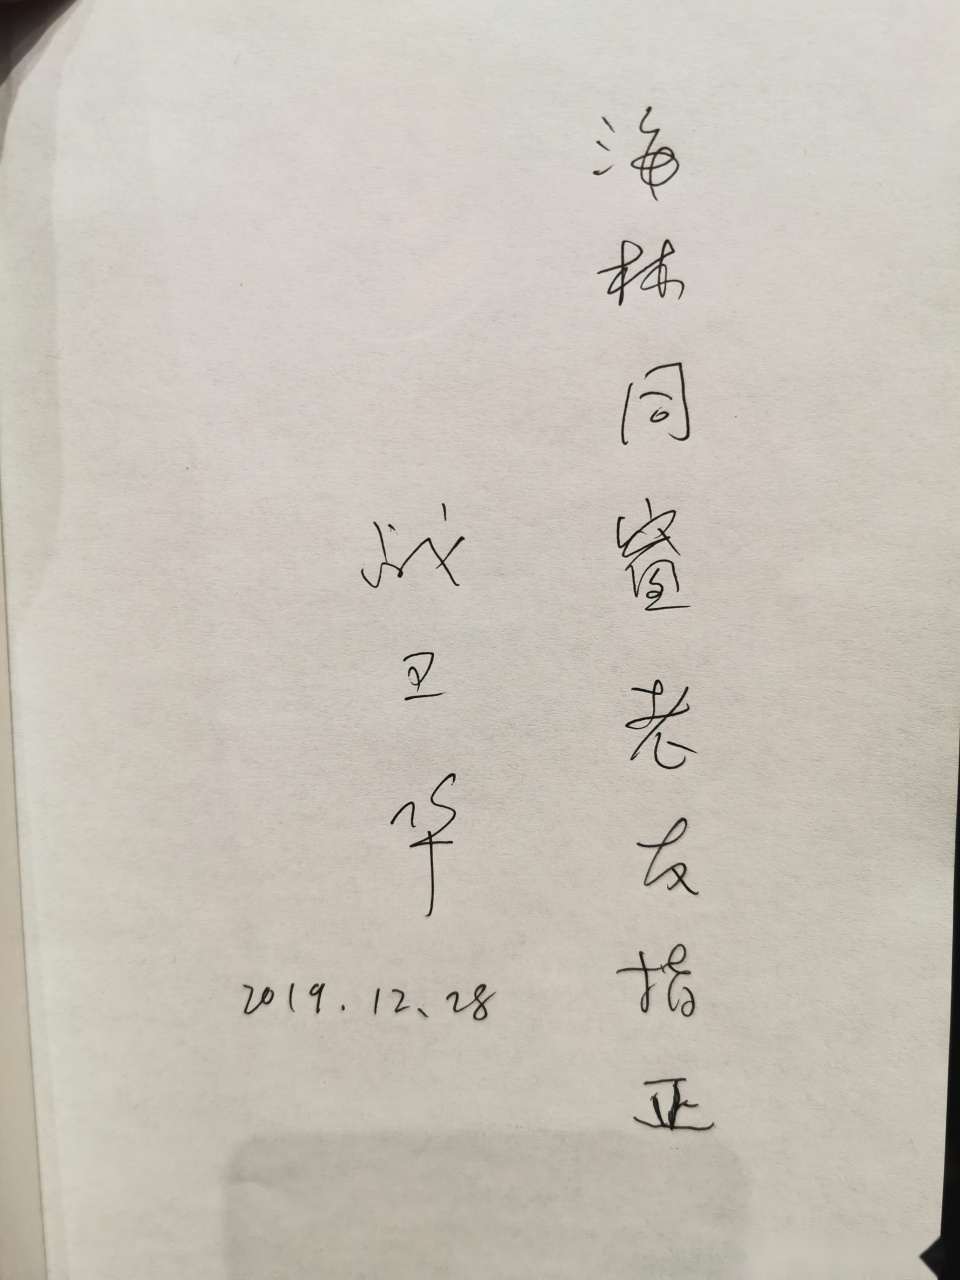 海林同窗老友指正
卫华
2019.12.28